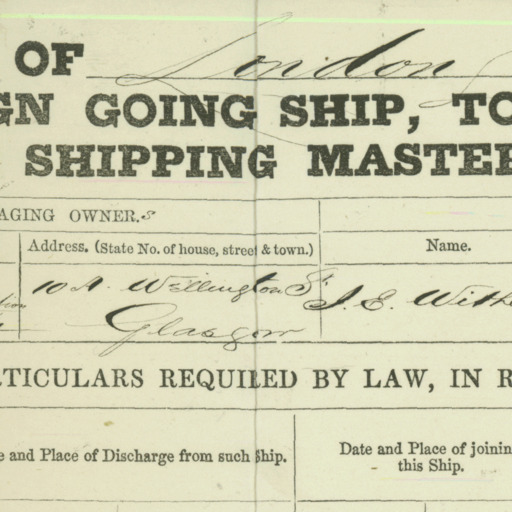 OF London
GN GOING SHIP, TO
SHIPPING MASTE
AGING OWNER.s
Address. (State No. of house, street & town.) Name.
10 A. Wellington St J. E. With
Glasgow
TICULARS REQUIRED BY LAW, IN R
e and Place of Discharge from such Ship. Date and Place of joinin
this Ship.